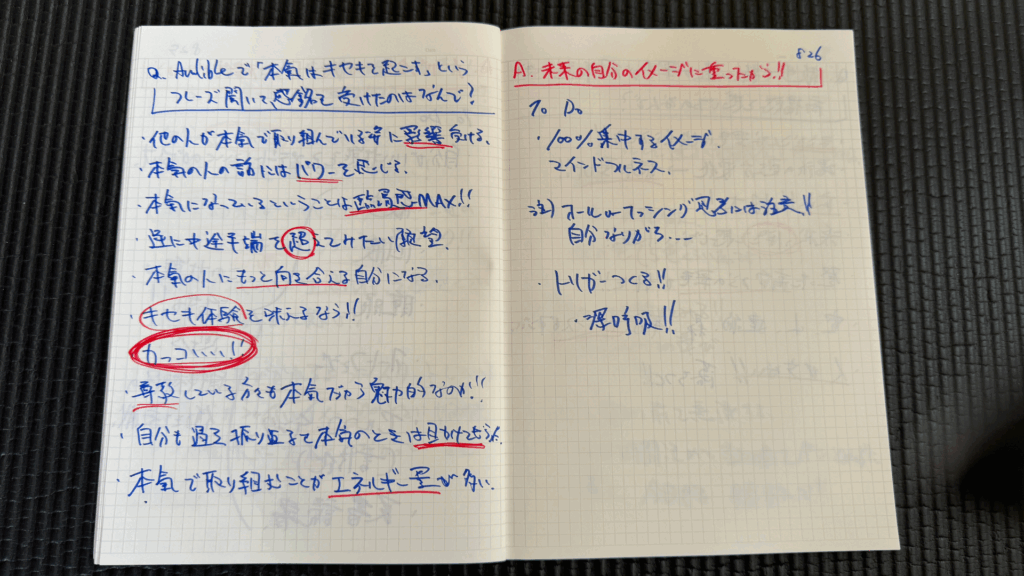 Q. Audibleで「本気はキセキを起こす」という
フレーズ聞いて感銘を受けたのはなんで？
・他の人が本気で取り組んでいる姿に影響受ける。
・本気の人の話にはパワーを感じる。
・本気になっているということは臨場感MAX!!
・逆に中途半端を超えてみたい願望。
・本気の人にもっと向き合える自分になる。
・キセキ体験を味えるなら!!
カッコいい!!
・尊敬している方々も本気だから魅力的なのか!!
・自分も過去振り返って本気のときは
・本気で取り組むことがエネルギー量が多い.
8.26
A. 未来の自分のイメージに重ったから!!
To Do
・100%集中するイメージ.
マインドフルネス.
注) オール or ナッシング思考には注意!!
自分なりがち...
・トリガーつくる!!
・深呼吸!!